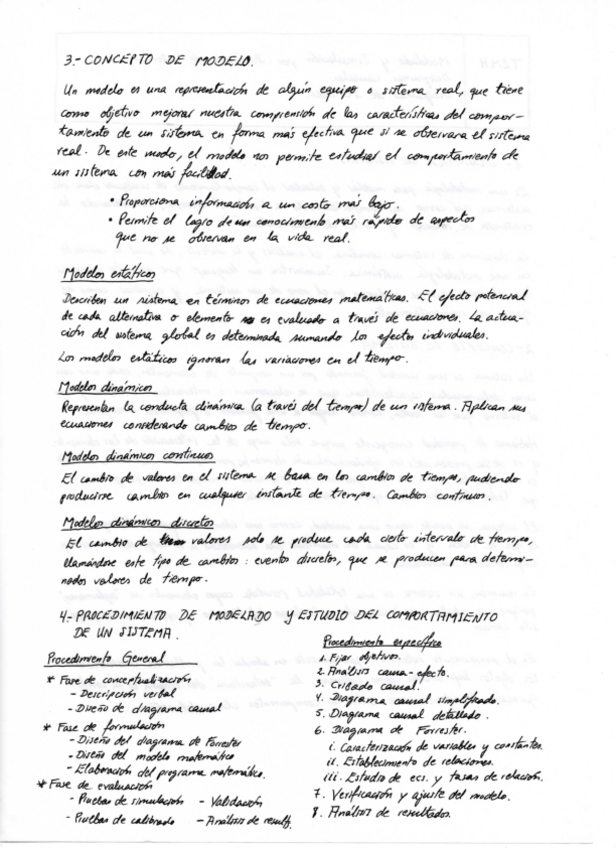 3.- CONCEPTO DE MODELO.
Un modelo es una representación de algún equipo o sistema real, que tiene
como objetivo mejorar nuestra comprensión de las características del compor-
tamiento de un sistema en forma más efectiva que si se observara el sistema
real. De este modo, el modelo nos permite estudiar el comportamiento de
un sistema con más facilidad.
• Proporciona información a un costo más bajo.
• Permite el logro de un conocimiento más rápido de aspectos
que no se observan en la vida real.
Modelos estáticos
Describen un sistema en términos de ecuaciones matemáticas. El efecto potencial
de cada alternativa o elemento es evaluado a través de ecuaciones. La actua-
ción del sistema global es determinada sumando los efectos individuales.
Los modelos estáticos ignoran las variaciones en el tiempo.
Modelos dinámicos
Representan la conducta dinámica (a través del tiempo) de un sistema. Aplican sus
ecuaciones considerando cambios de tiempo.
Modelos dinámicos continuos
El cambio de valores en el sistema se basa en los cambios de tiempo, pudiendo
producirse cambios en cualquier instante de tiempo. Cambios continuos.
Modelos dinámicos discretos
El cambio de valores solo se produce cada cierto intervalo de tiempo,
llamándose este tipo de cambios: eventos discretos, que se producen para determi-
nados valores de tiempo.
4.- PROCEDIMIENTO DE MODELADO Y ESTUDIO DEL COMPORTAMIENTO
DE UN SISTEMA.
Procedimiento General
* Fase de conceptualización
- Descripción verbal
- Diseño de diagrama causal
* Fase de formulación
- Diseño del diagrama de Forrester
- Diseño del modelo matemático
- Elaboración del programa matemático.
* Fase de evaluación
- Pruebas de simulación - Validación
- Pruebas de calibrado - Análisis de result.
Procedimiento específico
1. Fijar objetivos.
2. Análisis causa-efecto.
3. Cribado causal.
4. Diagrama causal simplificado.
5. Diagrama causal detallado.
6. Diagrama de Forrester.
i. Caracterización de variables y constantes.
ii. Establecimiento de relaciones.
iii. Estudio de ecs. y tasas de relación.
7. Verificación y ajuste del modelo.
8. Análisis de resultados.